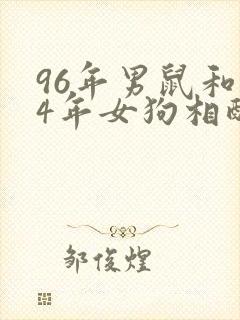 96年男鼠和
4年女狗相配
邹俊煌